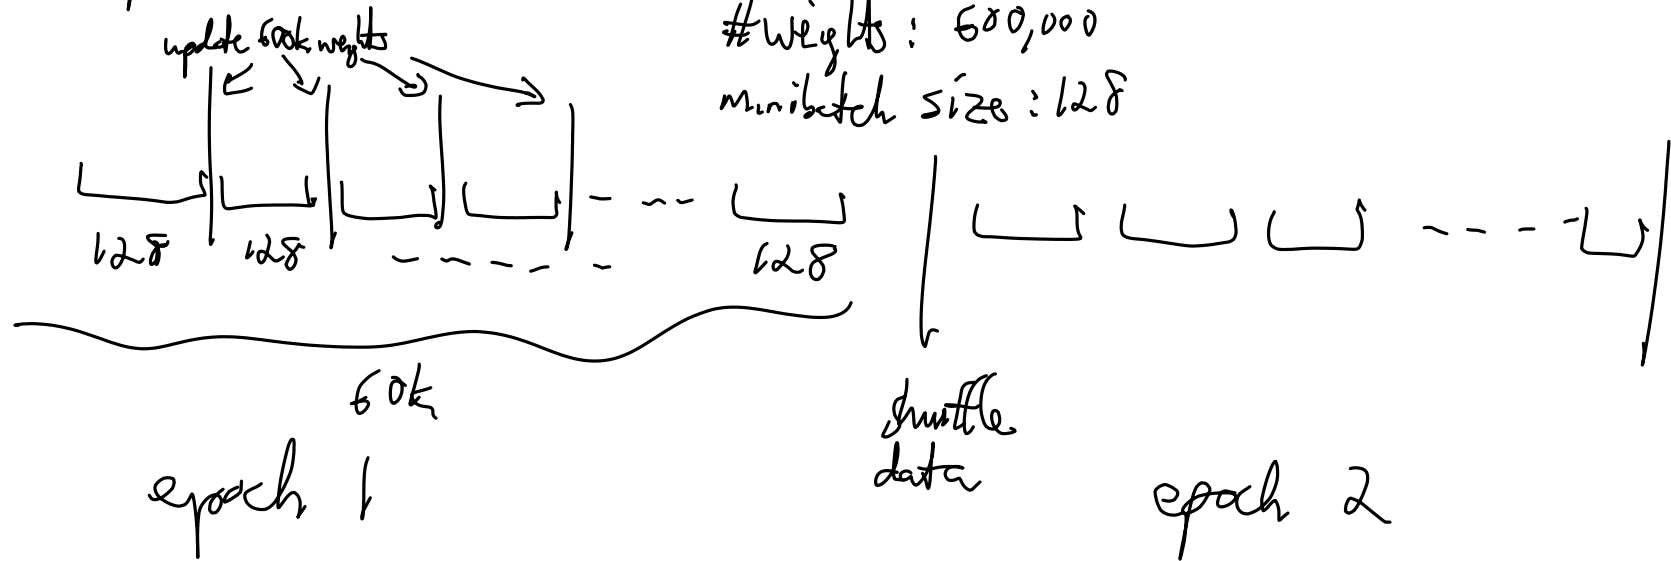 update 600k weights
#weights: 600,000
minibatch size: 128
128
128
128
60k
shuffle
data
epoch 1
epoch 2